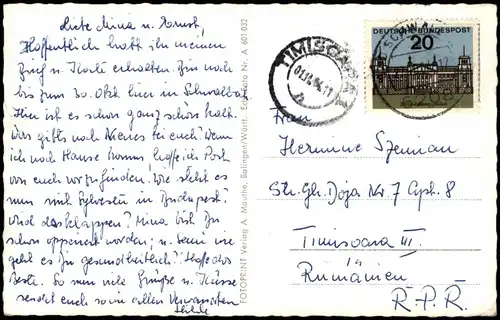 Liebe Mina u. Ernst,
Hoffentlich habt ihr meinen
Brief u. Karte erhalten. Bin noch
bis zum 30. Okt. hier in Schwalbach
Hier ist es schon ganz schön kalt.
Was gibts noch Neues bei euch? Wenn
ich nach Hause komme, hoffe ich Post
von euch vorzufinden. Wie steht es
nun mit Sylvester in Budapest?
Wird das klappen? Mina bist Du
schon operiert worden, u. Semi wie
geht es Dir gesundheitlich? Hoffe das
Beste. So nun viele Grüße u. Küsse
sendet euch so wie allen Verwandten
Hilde
FOTOPRINT Verlag A. Mauthe, Balingen/Württ. Echt Foto Nr. A 601 032
TIMISOARA
DEUTSCHE BUNDESPOST
20
Frau
Hermine
Str. Gh. Doja Nr. 7 Apt. 8
Timisoara III.
Rumänien
R.P.R.